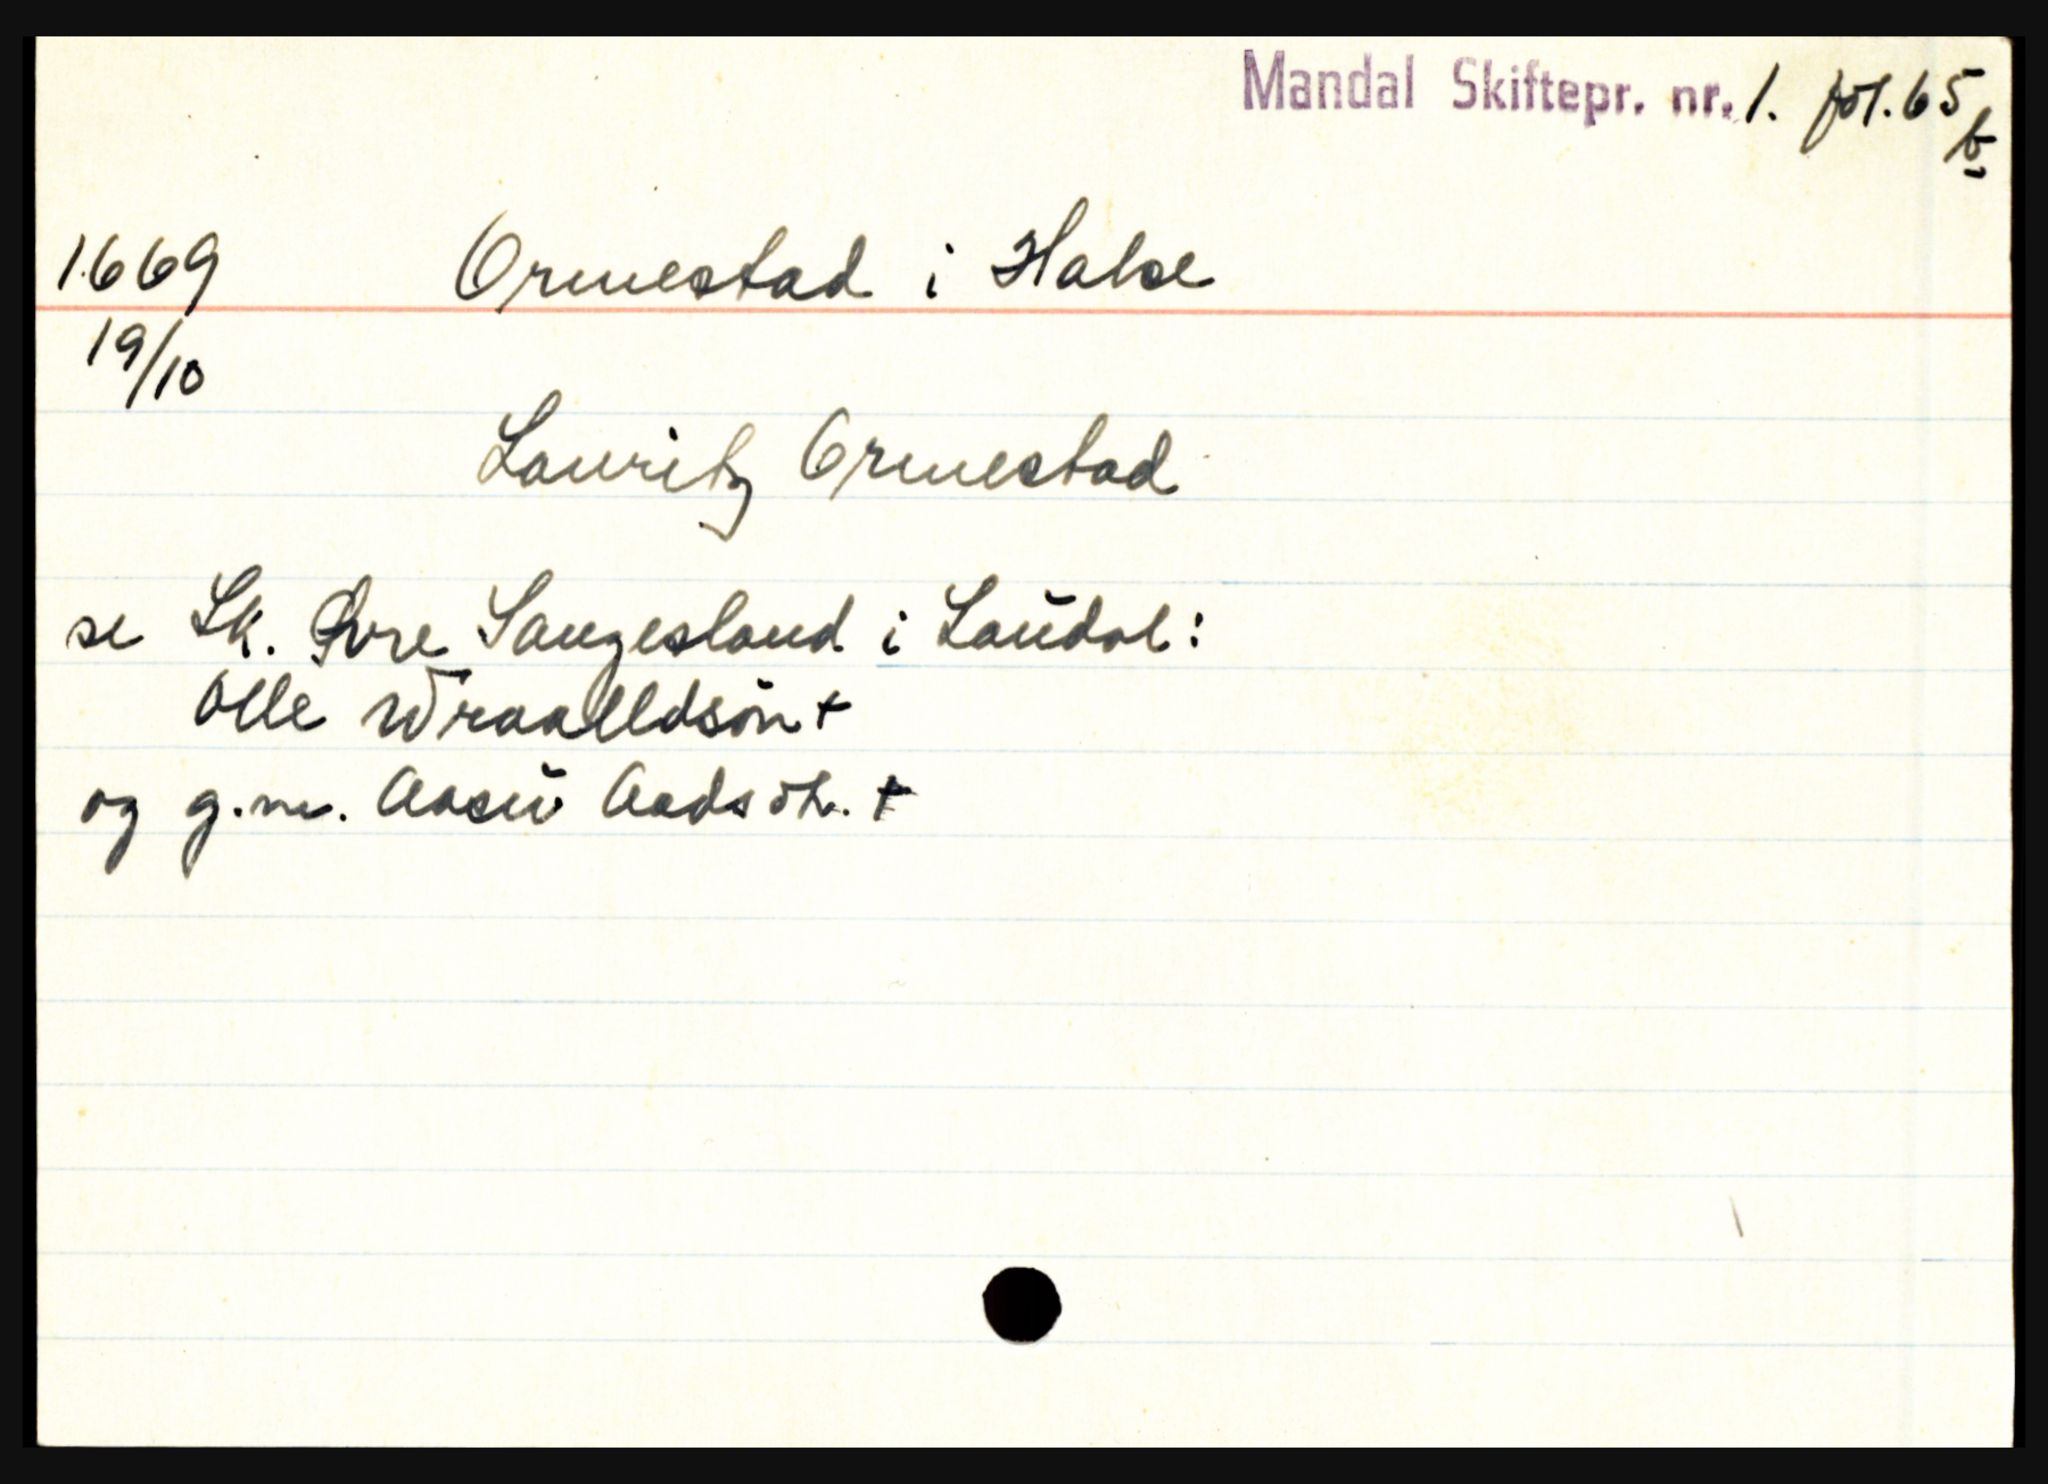 Mandal Skiftepr. nr. 1. fol. 65 b
1669 Ormestad i Halse
19/10
Lauritz Ormestad
se Sk. Øvre Saugesland i Laŭdal:
Olle Wraalldsøn +
og g.m. Aasŭ Aadsdtr. +